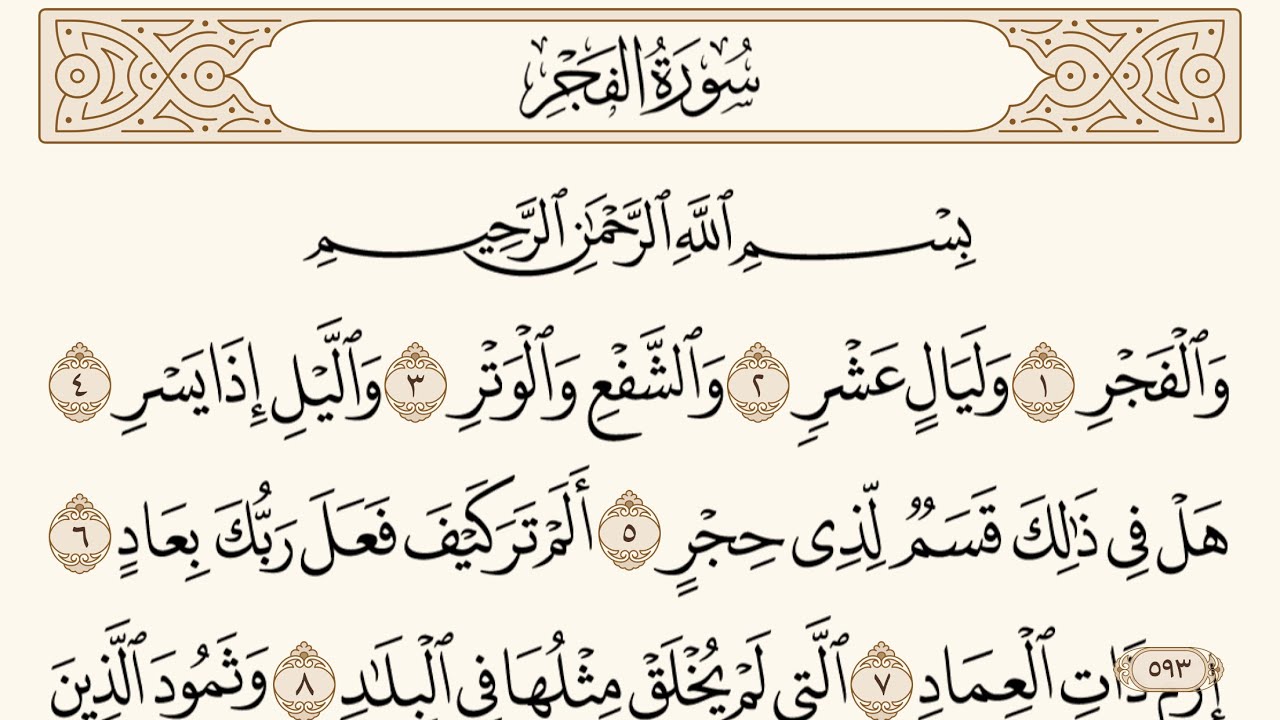 سُورَةُ الفَجْرِ
بِسْمِ ٱللَّهِ ٱلرَّحْمَٰنِ ٱلرَّحِيمِ
وَٱلْفَجْرِ ١ وَلَيَالٍ عَشْرٍ ٢ وَٱلشَّفْعِ وَٱلْوَتْرِ ٣ وَٱلَّيْلِ إِذَا يَسْرِ ٤
هَلْ فِى ذَٰلِكَ قَسَمٌ لِّذِى حِجْرٍ ٥ أَلَمْ تَرَ كَيْفَ فَعَلَ رَبُّكَ بِعَادٍ ٦
إِرَمَ ذَاتِ ٱلْعِمَادِ ٧ ٱلَّتِى لَمْ يُخْلَقْ مِثْلُهَا فِى ٱلْبِلَٰدِ ٨ وَثَمُودَ ٱلَّذِينَ
٥٩٣